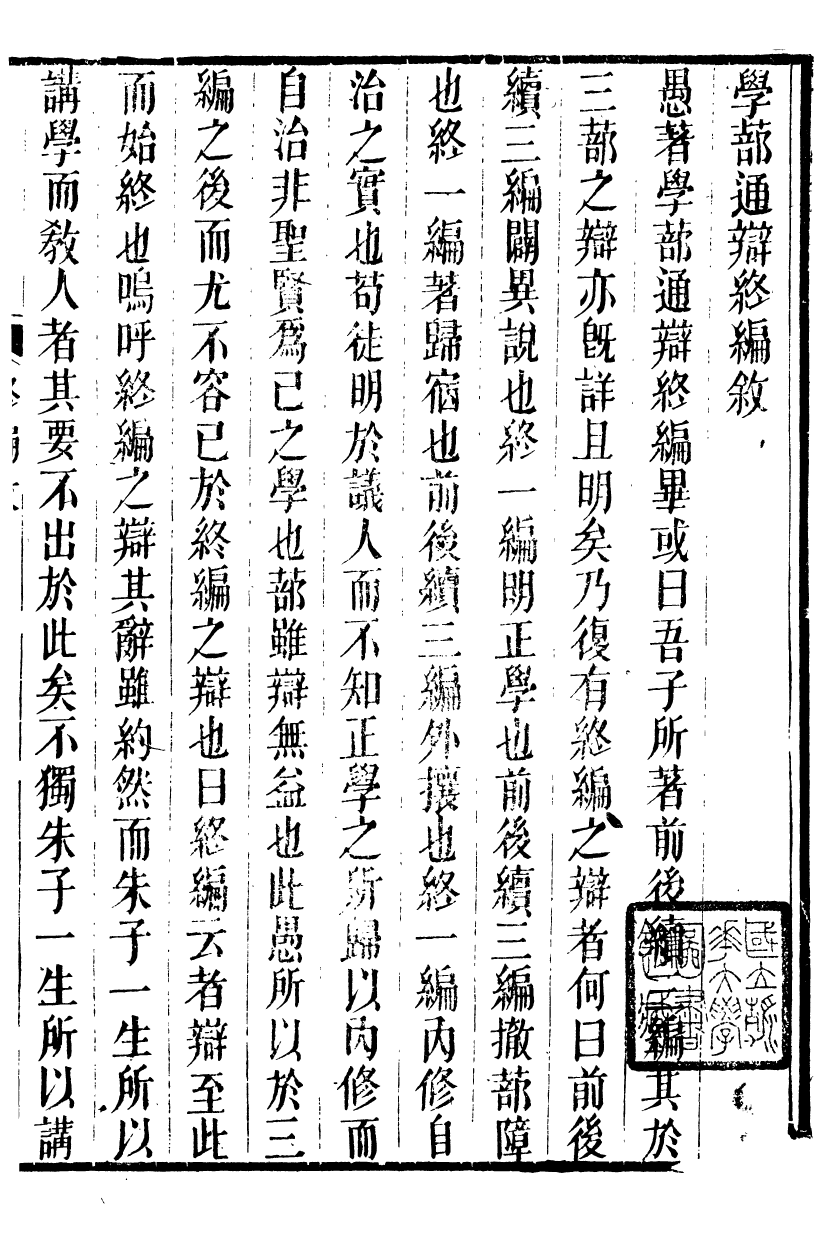 學蔀通辯終編敘
愚著學蔀通辯終編畢或曰吾子所著前後續三編其於
三蔀之辯亦旣詳且明矣乃復有終編之辯者何曰前後
續三編闢異說也終一編明正學也前後續三編撤蔀障
也終一編著歸宿也前後續三編外攘也終一編內修自
治之實也苟徒明於議人而不知正學之所歸以內修而
自治非聖賢爲己之學也蔀雖辯無益也此愚所以於三
編之後而尤不容已於終編之辯也曰終編云者辯至此
而始終也嗚呼終編之辯其辭雖約然而朱子一生所以
講學而敎人者其要不出於此矣不獨朱子一生所以講
國立
大學